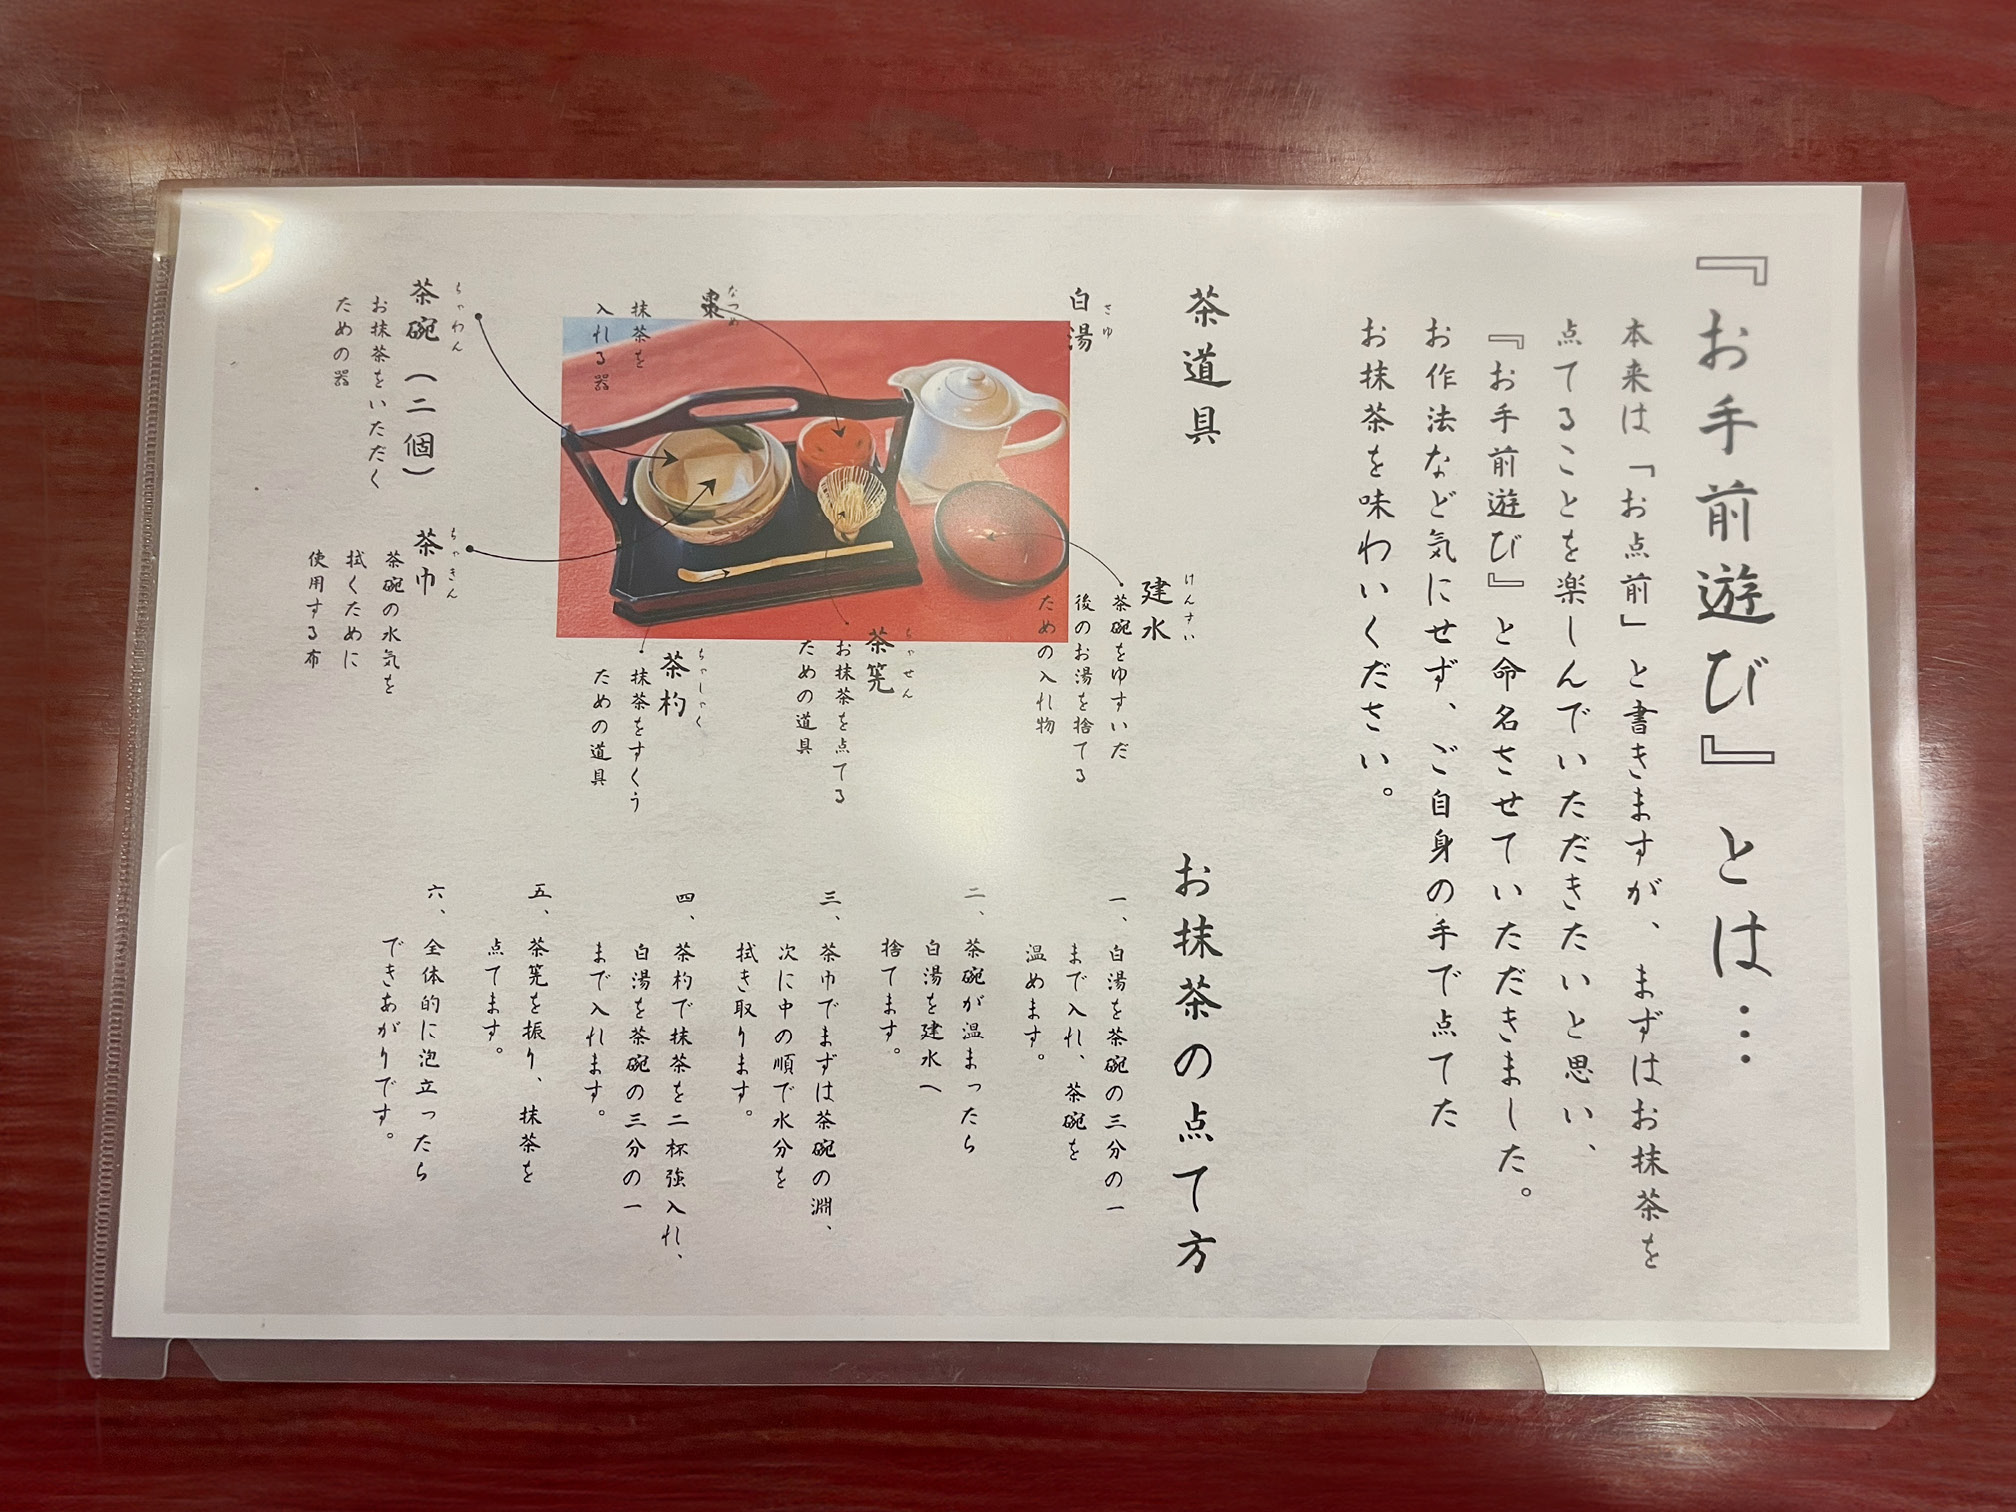 『お手前遊び』とは…
本来は「お点前」と書きますが、まずはお抹茶を
点てることを楽しんでいただきたいと思い、
『お手前遊び』と命名させていただきました。
お作法など気にせず、ご自身の手で点てた
お抹茶を味わいください。
茶道具
白湯
さゆ
建水
けんすい
茶碗をゆすいだ
後のお湯を捨てる
ための入れ物
棗
なつめ
抹茶を
入れる器
茶筅
ちゃせん
お抹茶を点てる
ための道具
茶杓
ちゃしゃく
抹茶をすくう
ための道具
茶碗(二個)
ちゃわん
お抹茶をいただく
ための器
茶巾
ちゃきん
茶碗の水気を
拭くために
使用する布
お抹茶の点て方
一、白湯を茶碗の三分の一
まで入れ、茶碗を
温めます。
二、茶碗が温まったら
白湯を建水へ
捨てます。
三、茶巾でまずは茶碗の淵、
次に中の順で水分を
拭き取ります。
四、茶杓で抹茶を二杯強入れ、
白湯を茶碗の三分の一
まで入れます。
五、茶筅を振り、抹茶を
点てます。
六、全体的に泡立ったら
できあがりです。